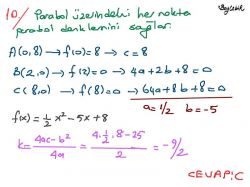 10/ Parabol üzerindeki her nokta
parabol denklemini sağlar.
A(0,8) → f(0)=8 → c=8
B(2,0) → f(2)=0 → 4a+2b+8=0
C(8,0) → f(8)=0 → 64a+8b+8=0
a=1/2 b=-5
f(x)=1/2 x²-5x+8
k= (4ac-b²)/4a = (4.1/2.8-25)/2 = -9/2
CEVAP: C